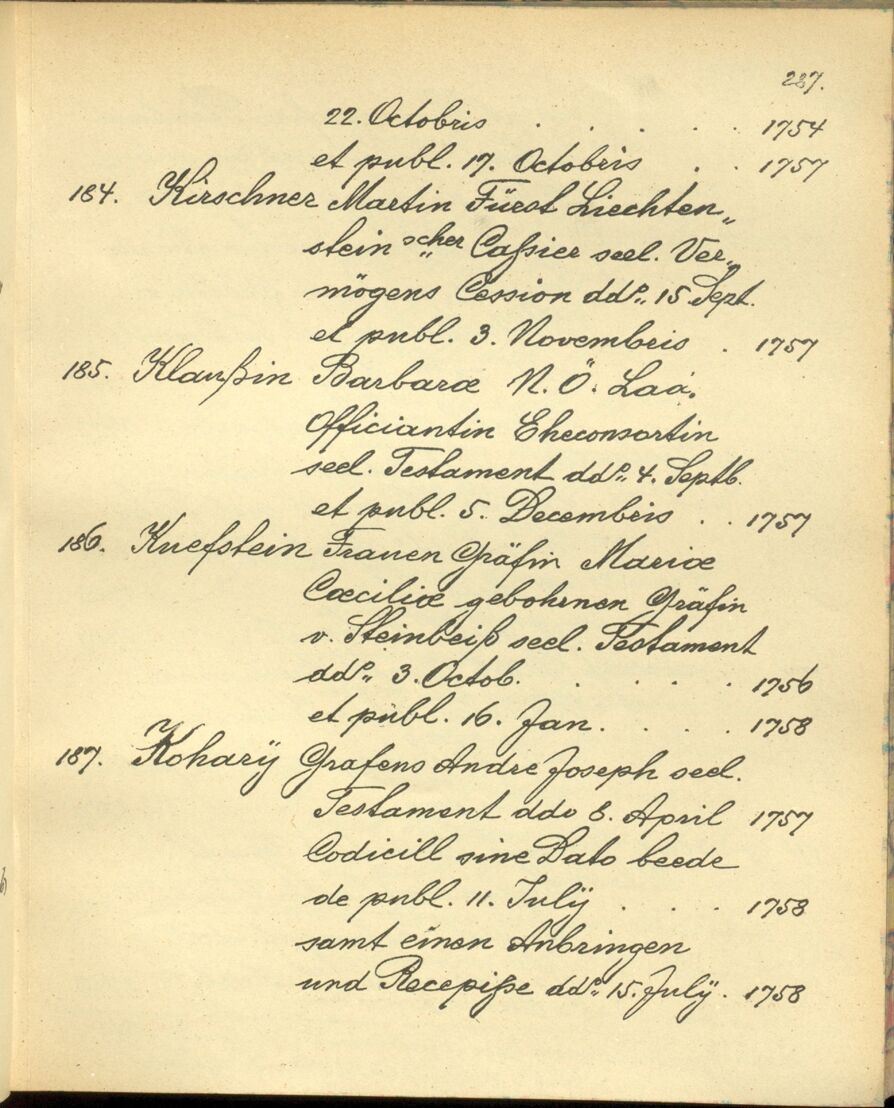 227.
22. Octobris . . . . . 1754
et publ. 17. Octobris . . 1757
184. Kirschner Martin Fürst Liechten„
stein„scher Caßier seel. Ver„
mögens Cession ddo„ 15. Sept.
et publ. 3. Novembris . 1757
185. Klaußin Barbaræ N. Ö. Laa.
Officiantin Eheconsortin
seel. Testament ddo„ 4. Septb.
et publ. 5. Decembris . . 1757
186. Kuefstein Frauen Gräfin Mariæ
Cæciliæ gebohrnen Gräfin
v. Steinbeiß seel. Testament
ddo„ 3. Octob. . . . . 1756
et publ. 16. Jan. . . . . 1758
187. Koharÿ Grafens Andre Joseph seel.
Testament ddo 8. April 1757
Codicill sine Dato beede
de publ. 11. Julÿ . . . 1758
samt einen Anbringen
und Recepiße ddo„ 15. Julÿ . 1758